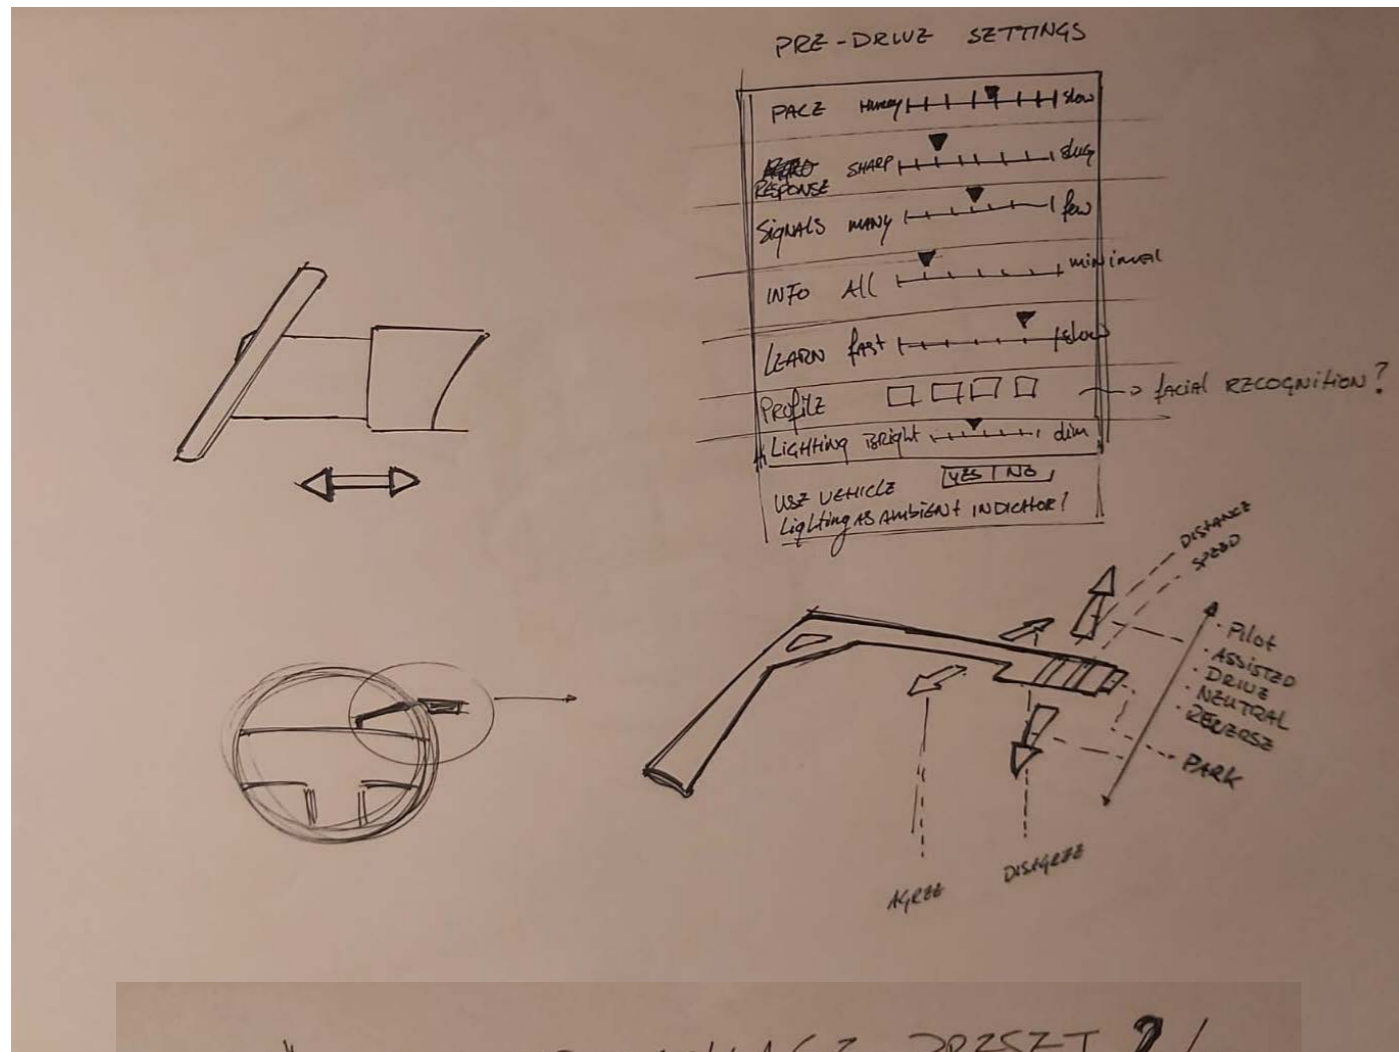 PRE-DRIVE SETTINGS
PACE Hurry slow
RESPONSE SHARP slug
SigNALS MANY few
INFO All minimal
LEARN fAST slow
PROfilE → fACIAL RECOGNITION?
LIGHTING BRIGHT dim
USE VEHICLE YES | NO
LigHting AS AMBIENT INDICATOR?
DISTANCE
SPEED
· Pilot
· ASSISTED
· DRIVE
· NEUTRAL
· REVERSE
PARK
AGREE
DISAGREE
PRESET ?